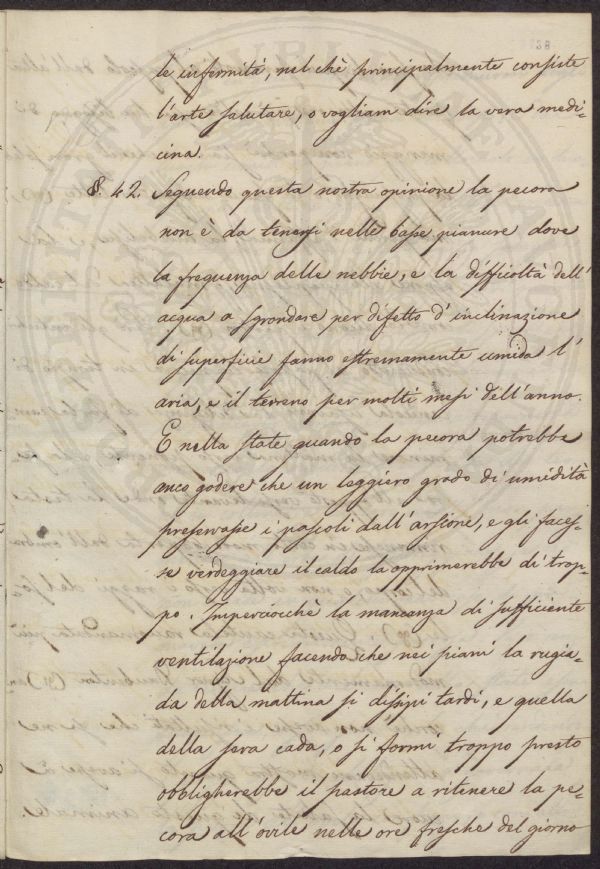 le infermità, nel chè principalmente consiste
l'arte salutare, o vogliam dire la vera medi-
cina.
§. 42. Seguendo questa nostra opinione la pecora
non è da tenersi nelle basse pianure dove
la frequenza delle nebbie, e la difficoltà dell'
acqua a sgrondare per difetto d'inclinazione
di superficie fanno estremamente umida l'
aria, e il terreno per molti mesi dell'anno.
E nella state quando la pecora potrebbe
anco godere che un leggiero grado di umidità
preservasse i pascoli dall'arsione, e gli faces-
se verdeggiare il caldo la opprimerebbe di trop-
po. Imperciocchè la mancanza di sufficiente
ventilazione facendo che nei piani la rugia-
da della mattina si dissipi tardi, e quella
della sera cada, o si formi troppo presto
obbligherebbe il pastore a ritenere la pe-
cora all'ovile nelle ore fresche del giorno